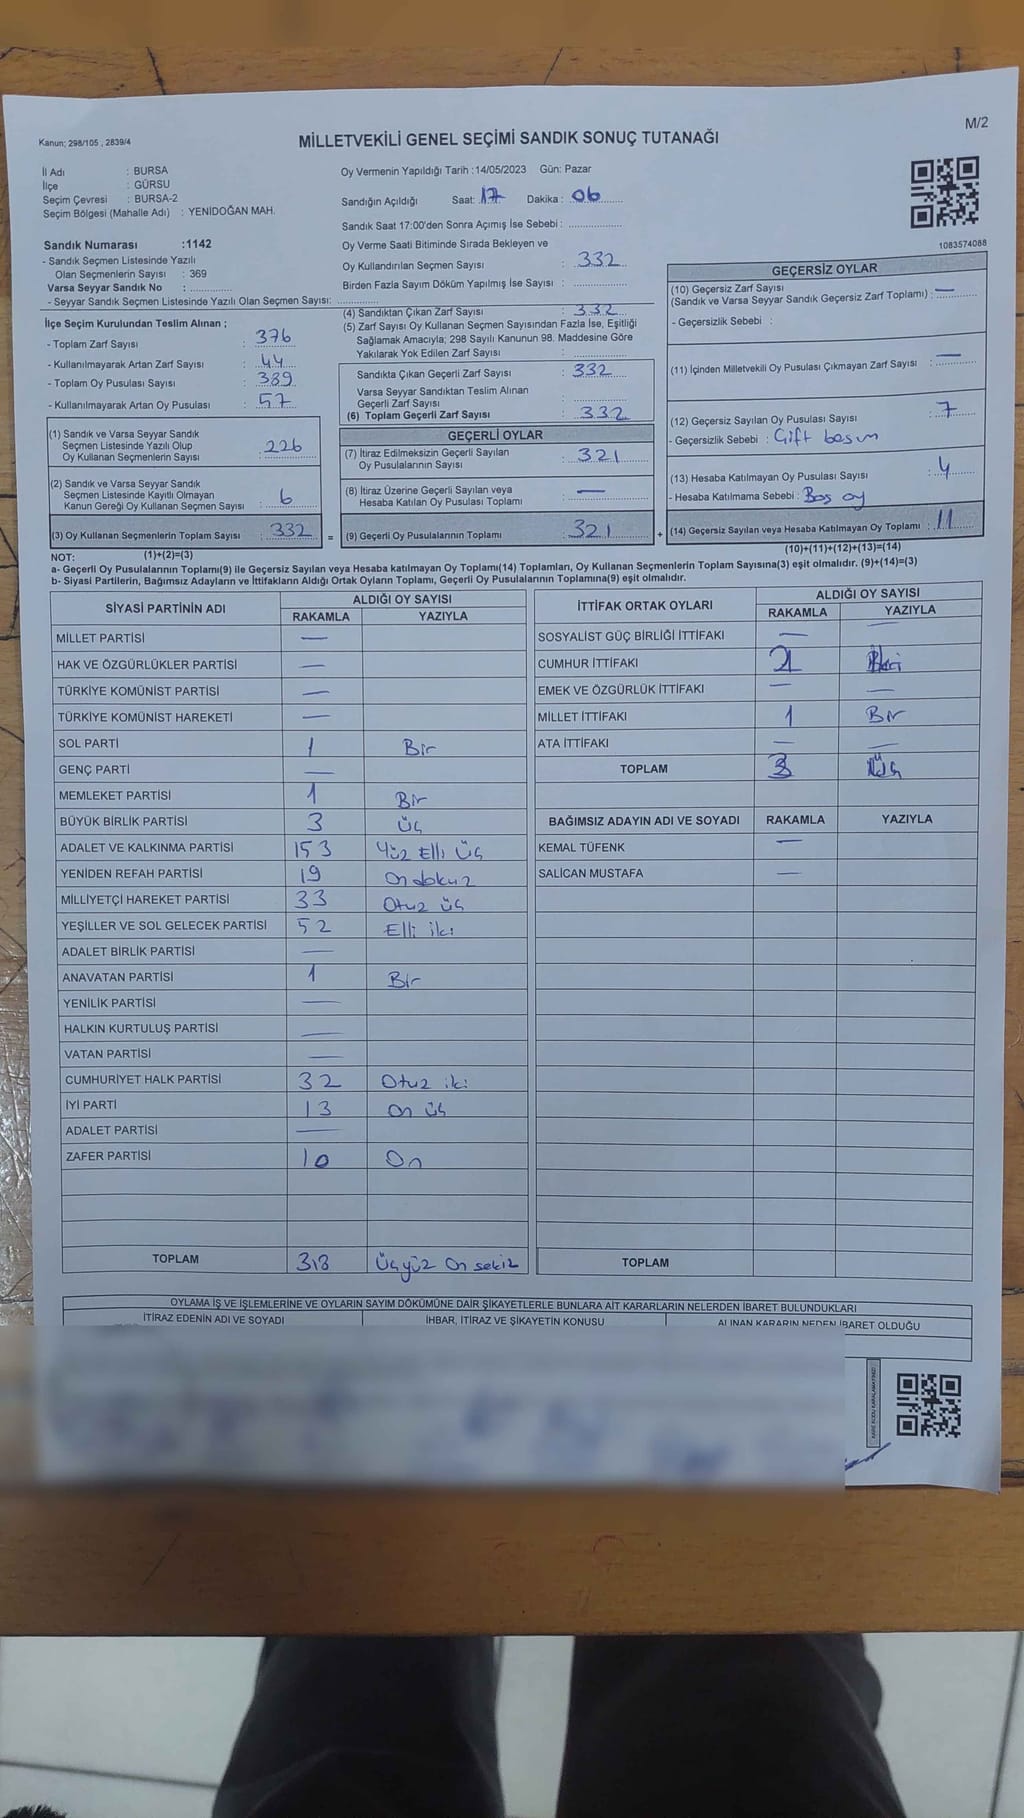 M/2
Kanun; 298/105 , 2839/4
MİLLETVEKİLİ GENEL SEÇİMİ SANDIK SONUÇ TUTANAĞI
İl Adı : BURSA
İlçe : GÜRSU
Seçim Çevresi : BURSA-2
Seçim Bölgesi (Mahalle Adı) : YENİDOĞAN MAH.
Oy Vermenin Yapıldığı Tarih :14/05/2023 Gün: Pazar
Sandığın Açıldığı Saat: 17 Dakika : 06
Sandık Saat 17:00'den Sonra Açımış İse Sebebi :
Oy Verme Saati Bitiminde Sırada Bekleyen ve
Oy Kullandırılan Seçmen Sayısı : 332
Birden Fazla Sayım Döküm Yapılmış İse Sayısı :
1083574088
Sandık Numarası :1142
- Sandık Seçmen Listesinde Yazılı
Olan Seçmenlerin Sayısı : 369
Varsa Seyyar Sandık No :
- Seyyar Sandık Seçmen Listesinde Yazılı Olan Seçmen Sayısı:
İlçe Seçim Kurulundan Teslim Alınan ;
- Toplam Zarf Sayısı : 376
- Kullanılmayarak Artan Zarf Sayısı : 44
- Toplam Oy Pusulası Sayısı : 389
- Kullanılmayarak Artan Oy Pusulası : 57
(1) Sandık ve Varsa Seyyar Sandık
Seçmen Listesinde Yazılı Olup
Oy Kullanan Seçmenlerin Sayısı : 226
(2) Sandık ve Varsa Seyyar Sandık
Seçmen Listesinde Kayıtlı Olmayan
Kanun Gereği Oy Kullanan Seçmen Sayısı : 6
(3) Oy Kullanan Seçmenlerin Toplam Sayısı : 332
(1)+(2)=(3)
(4) Sandıktan Çıkan Zarf Sayısı : 332
(5) Zarf Sayısı Oy Kullanan Seçmen Sayısından Fazla İse, Eşitliği
Sağlamak Amacıyla; 298 Sayılı Kanunun 98. Maddesine Göre
Yakılarak Yok Edilen Zarf Sayısı :
Sandıkta Çıkan Geçerli Zarf Sayısı : 332
Varsa Seyyar Sandıktan Teslim Alınan
Geçerli Zarf Sayısı :
(6) Toplam Geçerli Zarf Sayısı : 332
GEÇERLİ OYLAR
(7) İtiraz Edilmeksizin Geçerli Sayılan
Oy Pusulalarının Sayısı : 321
(8) İtiraz Üzerine Geçerli Sayılan veya
Hesaba Katılan Oy Pusulası Toplamı : —
= (9) Geçerli Oy Pusulalarının Toplamı : 321
GEÇERSİZ OYLAR
(10) Geçersiz Zarf Sayısı
(Sandık ve Varsa Seyyar Sandık Geçersiz Zarf Toplamı) : —
- Geçersizlik Sebebi :
(11) İçinden Milletvekili Oy Pusulası Çıkmayan Zarf Sayısı : —
(12) Geçersiz Sayılan Oy Pusulası Sayısı : 7
- Geçersizlik Sebebi : Çift basım
(13) Hesaba Katılmayan Oy Pusulası Sayısı : 4
- Hesaba Katılmama Sebebi : Boş oy
+ (14) Geçersiz Sayılan veya Hesaba Katılmayan Oy Toplamı : 11
(10)+(11)+(12)+(13)=(14)
NOT:
a- Geçerli Oy Pusulalarının Toplamı(9) ile Geçersiz Sayılan veya Hesaba katılmayan Oy Toplamı(14) Toplamları, Oy Kullanan Seçmenlerin Toplam Sayısına(3) eşit olmalıdır. (9)+(14)=(3)
b- Siyasi Partilerin, Bağımsız Adayların ve İttifakların Aldığı Ortak Oyların Toplamı, Geçerli Oy Pusulalarının Toplamına(9) eşit olmalıdır.
SİYASİ PARTİNİN ADI ALDIĞI OY SAYISI
RAKAMLA YAZIYLA
MİLLET PARTİSİ —
HAK VE ÖZGÜRLÜKLER PARTİSİ —
TÜRKİYE KOMÜNİST PARTİSİ —
TÜRKİYE KOMÜNİST HAREKETİ —
SOL PARTİ 1 Bir
GENÇ PARTİ —
MEMLEKET PARTİSİ 1 Bir
BÜYÜK BİRLİK PARTİSİ 3 üç
ADALET VE KALKINMA PARTİSİ 153 Yüz Elli Üç
YENİDEN REFAH PARTİSİ 19 On dokuz
MİLLİYETÇİ HAREKET PARTİSİ 33 Otuz üç
YEŞİLLER VE SOL GELECEK PARTİSİ 52 Elli iki
ADALET BİRLİK PARTİSİ —
ANAVATAN PARTİSİ 1 Bir
YENİLİK PARTİSİ —
HALKIN KURTULUŞ PARTİSİ —
VATAN PARTİSİ —
CUMHURİYET HALK PARTİSİ 32 Otuz iki
İYİ PARTİ 13 On üç
ADALET PARTİSİ —
ZAFER PARTİSİ 10 On
TOPLAM 318 Üçyüz On sekiz
İTTİFAK ORTAK OYLARI ALDIĞI OY SAYISI
RAKAMLA YAZIYLA
SOSYALİST GÜÇ BİRLİĞİ İTTİFAKI — —
CUMHUR İTTİFAKI 2 İki
EMEK VE ÖZGÜRLÜK İTTİFAKI — —
MİLLET İTTİFAKI 1 Bir
ATA İTTİFAKI — —
TOPLAM 3 Üç
BAĞIMSIZ ADAYIN ADI VE SOYADI RAKAMLA YAZIYLA
KEMAL TÜFENK —
SALİCAN MUSTAFA —
TOPLAM
OYLAMA İŞ VE İŞLEMLERİNE VE OYLARIN SAYIM DÖKÜMÜNE DAİR ŞİKAYETLERLE BUNLARA AİT KARARLARIN NELERDEN İBARET BULUNDUKLARI
İTİRAZ EDENİN ADI VE SOYADI İHBAR, İTİRAZ VE ŞİKAYETİN KONUSU ALINAN KARARIN NEDEN İBARET OLDUĞU